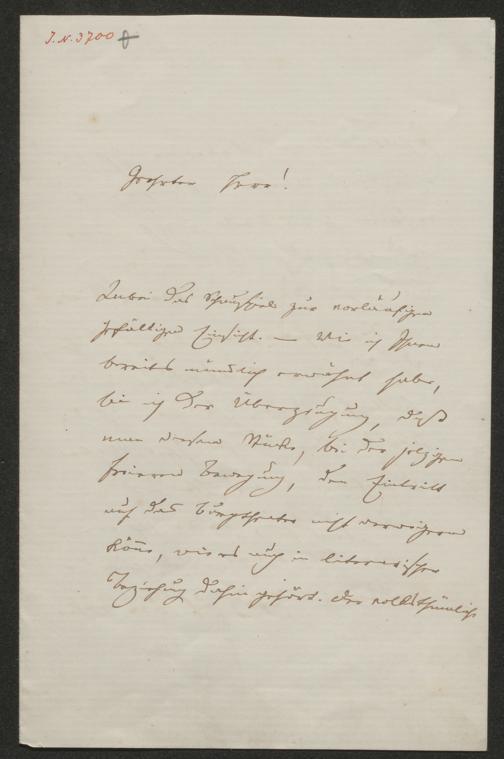 J.N. 3700
Geehrter Herr!
Anbei das Schauspiel zur vorläufigen
gefälligen Einsicht. — Wie ich Ihnen
bereits mündlich erwähnt habe,
bin ich der Überzeugung, daß
man diesem Stücke, bei der jetzigen
freieren Bewegung, den Eintritt
auf das Burgtheater nicht verweigern
könne, wie es auch in literarischer
Beziehung dahin gehört. Das volksthümliche